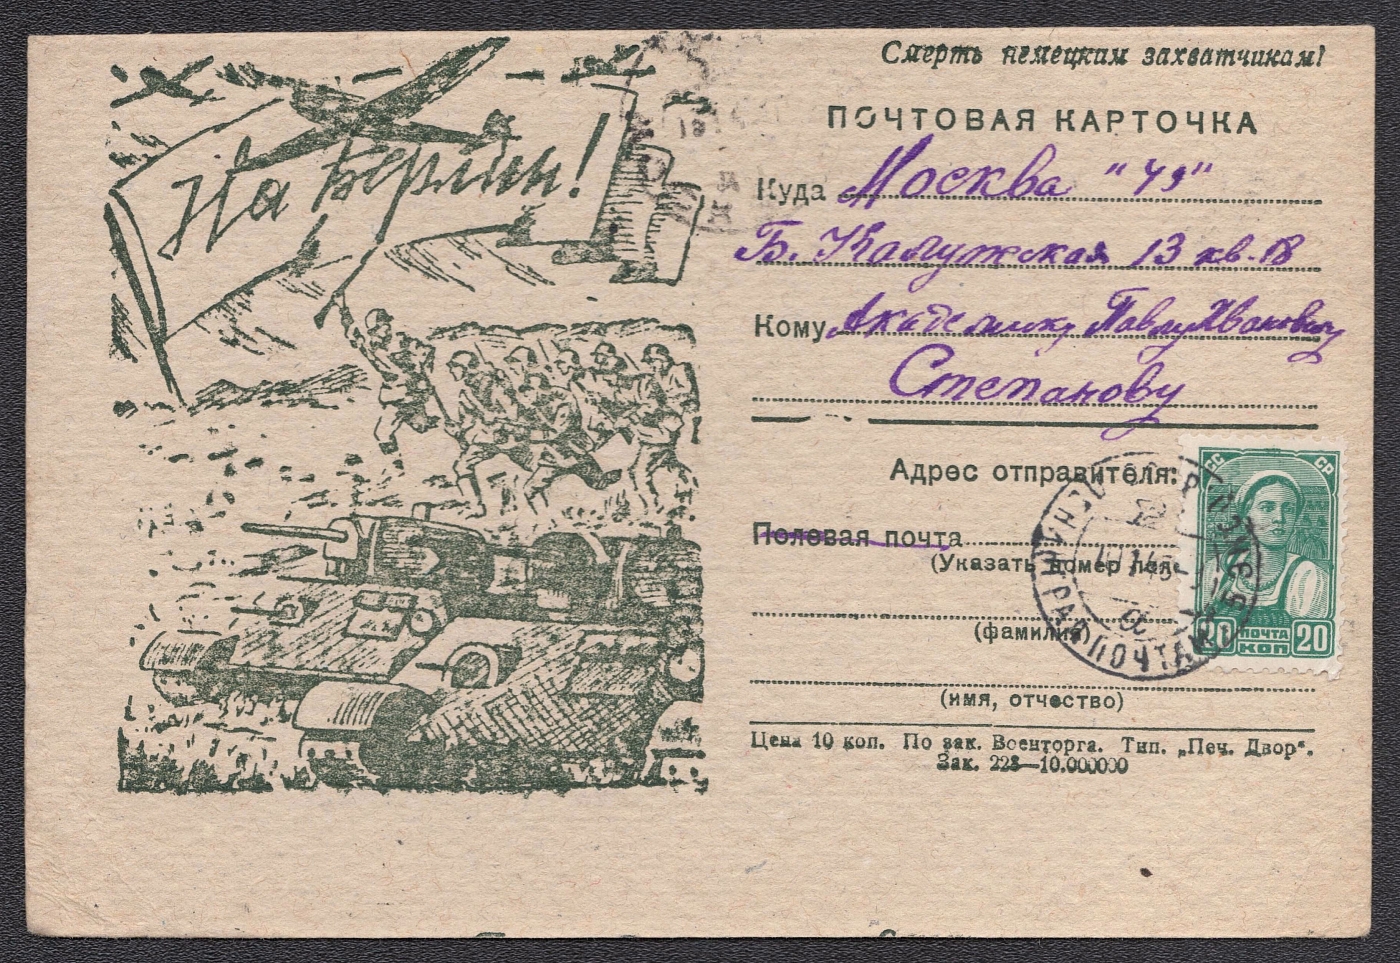 На Берлин!
Смерть немецким захватчикам!
ПОЧТОВАЯ КАРТОЧКА
Куда Москва "49"
Б. Калужская 13 кв. 18
Кому Академику Павлу Ивановичу
Степанову
Адрес отправителя:
Полевая почта
(Указать номер
(фамилия)
(имя, отчество)
СС СР
20 ПОЧТА 20
КОП
ПОЧТАМТ
Цена 10 коп. По зак. Военторга. Тип. „Печ. Двор“.
Зак. 228—10.000000